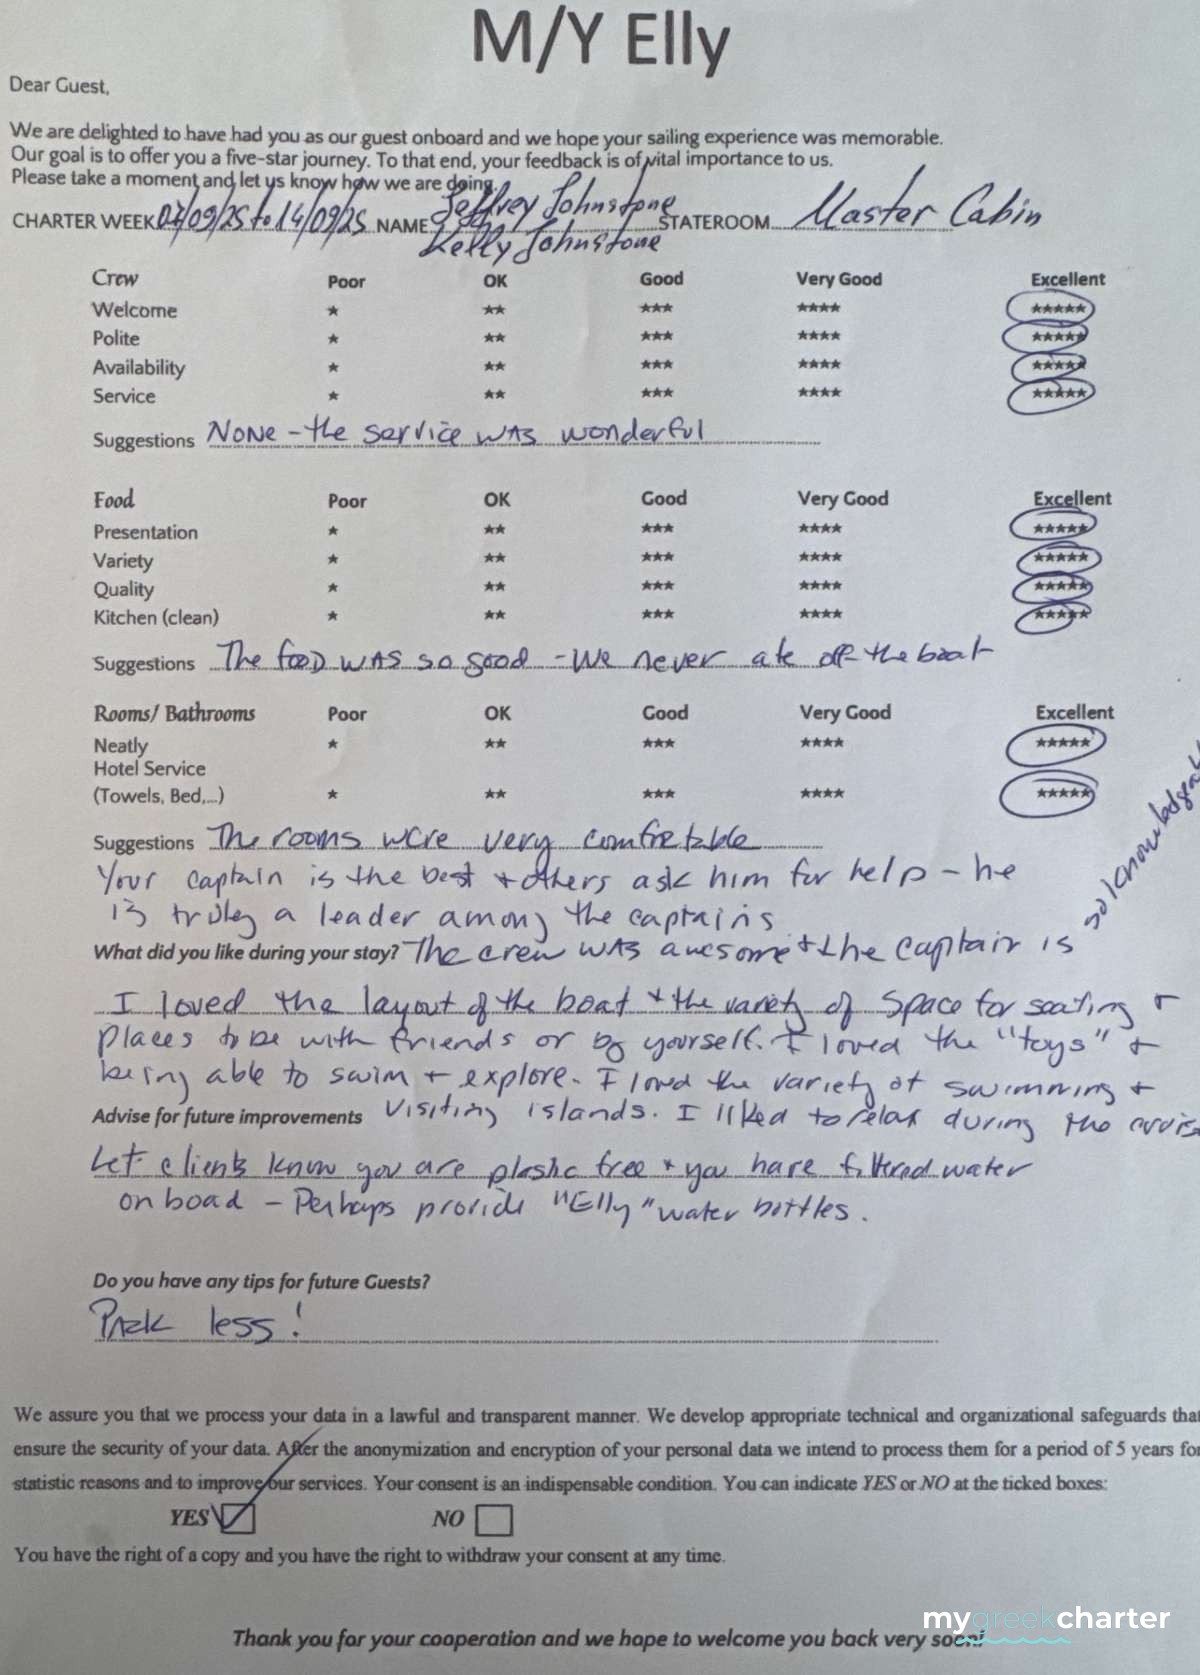 M/Y Elly
Dear Guest,
We are delighted to have had you as our guest onboard and we hope your sailing experience was memorable.
Our goal is to offer you a five-star journey. To that end, your feedback is of vital importance to us.
Please take a moment and let us know how we are doing.
CHARTER WEEK 07/09/25 to 14/09/25 NAME Jeffrey Johnstone STATEROOM Master Cabin
Kelly Johnstone
Crew Poor OK Good Very Good Excellent
Welcome ★ ★★ ★★★ ★★★★ ★★★★★
Polite ★ ★★ ★★★ ★★★★ ★★★★★
Availability ★ ★★ ★★★ ★★★★ ★★★★★
Service ★ ★★ ★★★ ★★★★ ★★★★★
Suggestions NONE - the service was wonderful
Food Poor OK Good Very Good Excellent
Presentation ★ ★★ ★★★ ★★★★ ★★★★★
Variety ★ ★★ ★★★ ★★★★ ★★★★★
Quality ★ ★★ ★★★ ★★★★ ★★★★★
Kitchen (clean) ★ ★★ ★★★ ★★★★ ★★★★★
Suggestions The food was so good - We never ate off the boat
Rooms/ Bathrooms Poor OK Good Very Good Excellent
Neatly ★ ★★ ★★★ ★★★★ ★★★★★
Hotel Service
(Towels, Bed,...) ★ ★★ ★★★ ★★★★ ★★★★★
Suggestions The rooms were very comfretable
Your captain is the best + others ask him for help - he
is truley a leader among the captains
What did you like during your stay? The crew was awesome + the captain is so
I loved the layout of the boat + the variety of space for seating +
places to be with friends or by yourself. I loved the "toys" +
being able to swim + explore. I loved the variety of swimming +
Advise for future improvements visiting islands. I liked to relax during the
Let clients know you are plastic free + you have filtered water
on boad - Perhaps provide "Elly" water bottles.
Do you have any tips for future Guests?
Pack less!
We assure you that we process your data in a lawful and transparent manner. We develop appropriate technical and organizational safeguards that
ensure the security of your data. After the anonymization and encryption of your personal data we intend to process them for a period of 5 years for
statistic reasons and to improve our services. Your consent is an indispensable condition. You can indicate YES or NO at the ticked boxes:
YES NO
You have the right of a copy and you have the right to withdraw your consent at any time.
mygreekcharter
Thank you for your cooperation and we hope to welcome you back very soon!